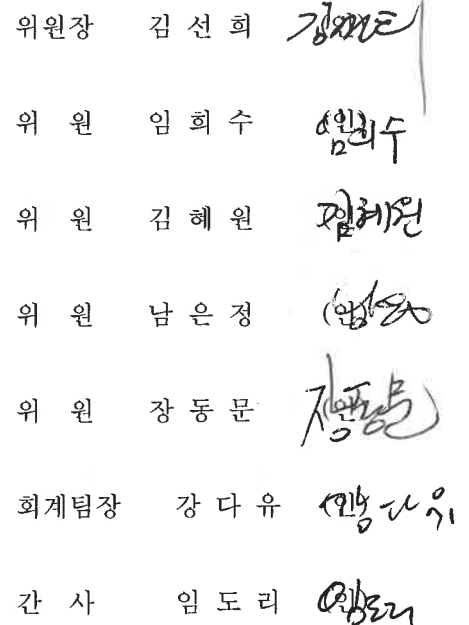 위원장 김 선 희
위 원 임 희 수 (인) 임희수
위 원 김 혜 원 (인) 김혜원
위 원 남 은 정 (인)
위 원 장 동 문 (인) 장동문
회계팀장 강 다 유 (인) 강다유
간 사 임 도 리 (인) 임도리